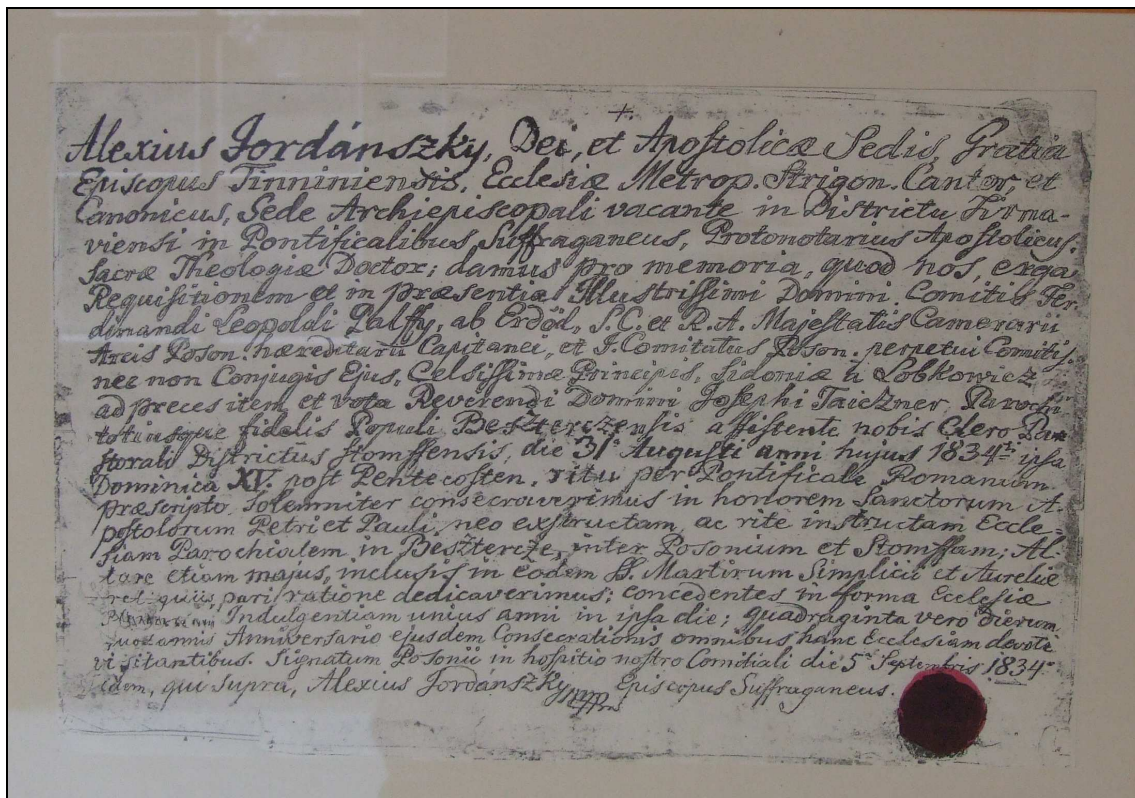 +
Alexius Jordánszky, Dei, et Apostolicæ Sedis Gratia
Episcopus Tinniniensis, Ecclesiæ Metrop. Strigon. Cantor, et
Canonicus, Sede Archiepiscopali vacante in Districtu Tirna-
viensi in Pontificalibus Suffraganeus, Protonotarius Apostolicus,
Sacræ Theologiæ Doctor; damus pro memoria, quod nos, erga
Requisitionem et in præsentia Illustrissimi Domini Comitis Fer-
dinandi Leopoldi Palffy, ab Erdöd, S.C. et R.A. Majestatis Camerarii
Arcis Poson. hæreditarii Capitanei, et I. Comitatus Poson. perpetui Comitis,
nec non Conjugis Ejus, Celsissimæ Principis, Sidoniæ a Lobkowicz
ad preces item et vota Reverendi Domini Josephi Parochi
totiusque fidelis Populi Beszterczensis assistente nobis Clero Pa-
storali Districtus Stomffensis, die 31ª Augusti anni hujus 1834ti ipsa
Dominica XV. post Pentecosten, ritu per Pontificale Romanum
præscripto Solemniter consecraverimus in honorem Sanctorum A-
postolorum Petri et Pauli, neo exstructam, ac rite instructam Eccle-
siam Parochialem in Besztercze, inter Posonium et Stomffam; Al-
tare etiam majus, inclusis in eodem SS. Martirum Simplicii et Aureliæ
reliquiis, pari ratione dedicaverimus; concedentes in forma Ecclesiæ
Indulgentiam unius anni in ipsa die; quadraginta vero dierum
quotannis Anniversario ejusdem Consecrationis omnibus hanc Ecclesiam devote
visitantibus. Signatum Posonii in hospitio nostro Comitiali die 5ª Septembris 1834º
idem, qui supra, Alexius Jordánszky mpp Episcopus Suffraganeus.